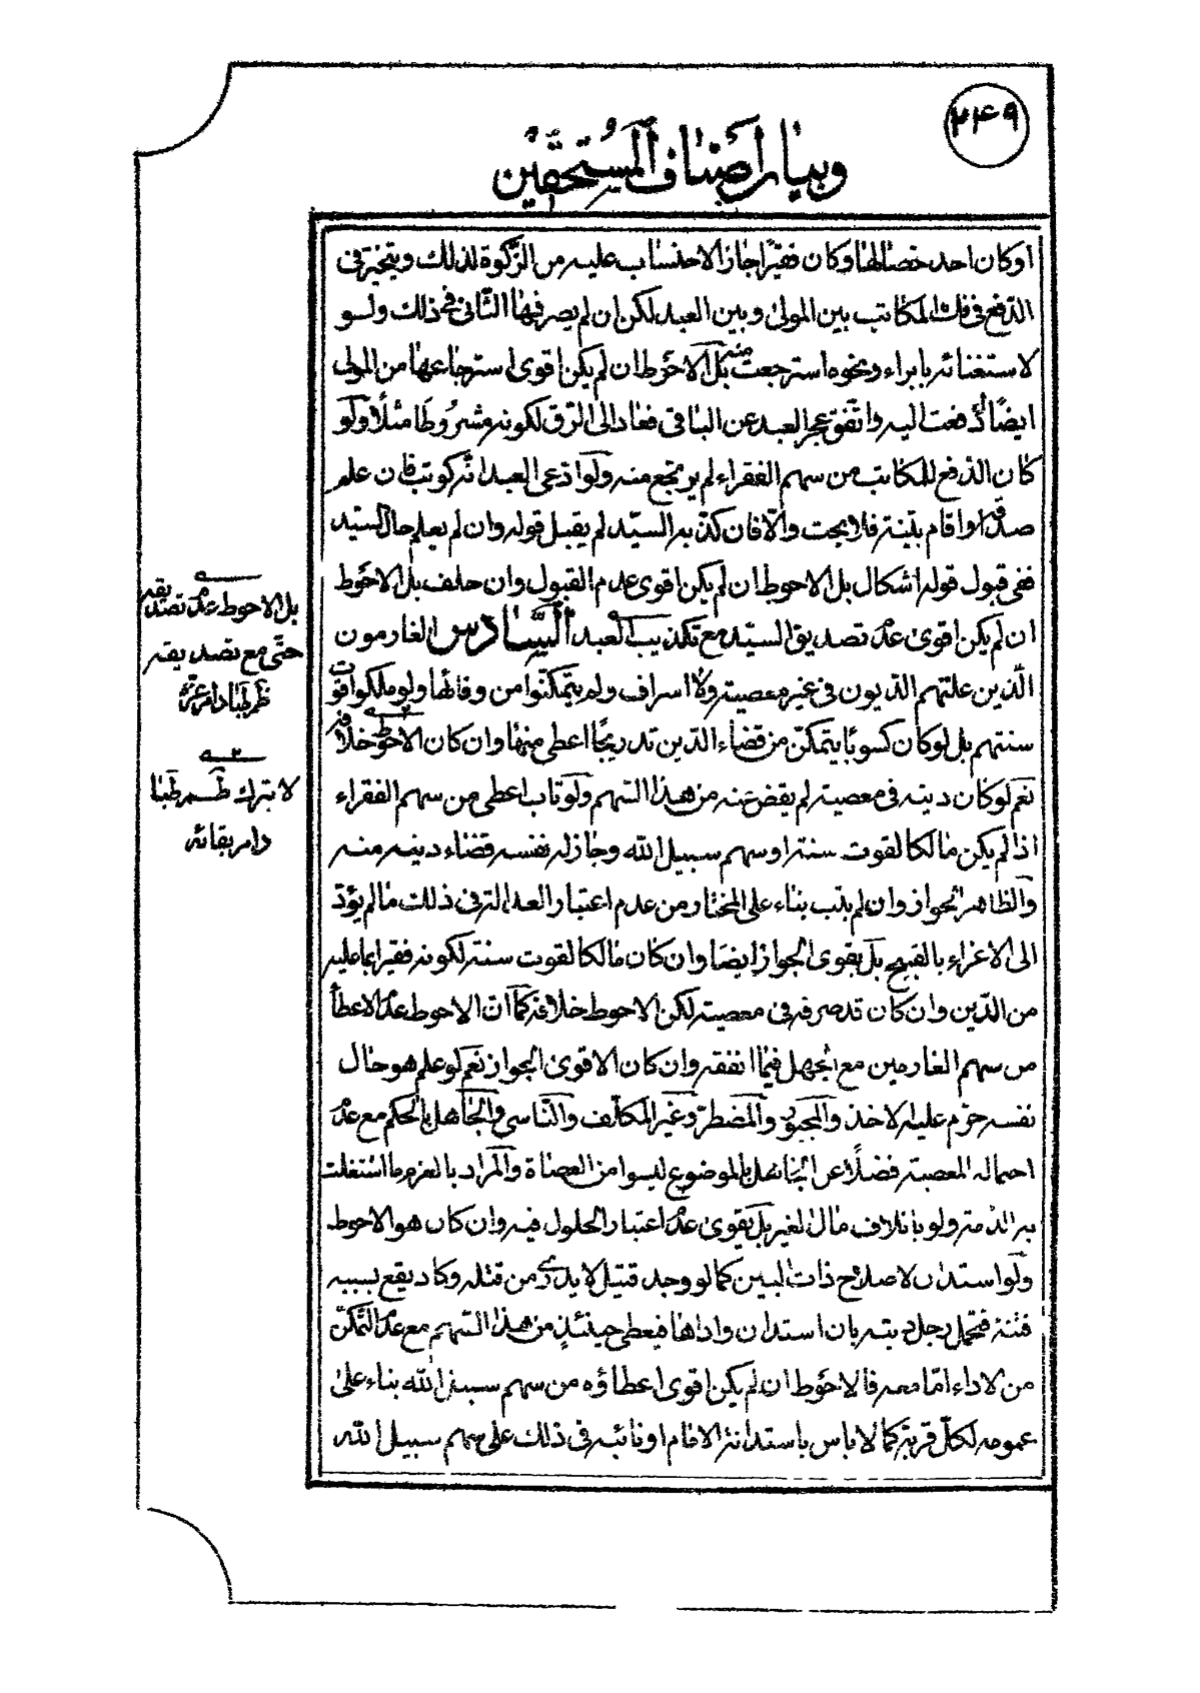 ٢٤٩
وبيان أصناف المستحقين
او كان احد خصالها وكان فقيرا جاز الاحتساب عليه من الزّكوة لذلك ويتخيّر في
الدّفع في فك المكاتب بين المولى وبين العبد لكن ان لم يصرفها الثّاني في ذلك ولو
لاستغنائه بابراء ونحوه استرجعت منه بل الاحوط ان لم يكن اقوى استرجاعها من المولى
ايضًا لو دفعت اليه واتّفق عجز العبد عن الباقي فعاد الى الرّق لكونه مشروطا مثلًا ولو
كان الدّفع للمكاتب من سهم الفقراء لم يرتجع منه ولو ادّعى العبد انّه كوتب فان علم
صدقه او اقام بيّنة فلا بحث والّا فان كذّبه السيّد لم يقبل قوله وان لم يعلم حال السيّد
ففي قبول قوله اشكال بل الاحوط ان لم يكن اقوى عدم القبول وان حلف بل الاحوط
ان لم يكن اقوى عدم تصديق السيّد مع تكذيب العبد السّادس الغارمون
الّذين علتهم الدّيون في غير معصية ولا اسراف ولم يتمكّنوا من وفائها ولو ملكوا قوت
سنتهم بل لو كان كسوبًا يتمكّن من قضاء الدّين تدريجًا اعطي منها وان كان الاحوط خلافه
نعم لو كان دينه في معصية لم يقض عنه من هذا السّهم ولو تاب اعطي من سهم الفقراء
اذا لم يكن مالكا لقوت سنته او سهم سبيل الله وجاز له نفسه قضاء دينه منه
والظاهر الجواز وان لم يتب بناء على المختار من عدم اعتبار العدالة في ذلك ما لم يؤدّ
الى الاغراء بالقبيح بل يقوى الجواز ايضا وان كان مالكا لقوت سنته لكونه فقيرا بما عليه
من الدّين وان كان قد صرفه في معصية لكن الاحوط خلافه كما انّ الاحوط عدم الاعطاء
من سهم الغارمين مع الجهل فيما انفقه وان كان الاقوى الجواز نعم لو علم هو حال
نفسه حرم عليه الاخذ والمجبور والمضطرّ وغير المكلّف والنّاسي والجاهل بالحكم مع عدم
احتماله المعصية فضلًا عن الجاهل بالموضوع ليسوا من العصاة والمراد بالغرم ما اشتغلت
به الذّمة ولو باتلاف مال الغير بل يقوى عدم اعتبار الحلول فيه وان كان هو الاحوط
ولو استدان لاصلاح ذات البين كما لو وجد قتيل لا يدرى من قتله وكاد يقع بسببه
فتنة فتحمّل رجل ديته بان استدان واداها فيعطى حينئذٍ من هذا السّهم مع عدم التّمكّن
من الاداء امّا معه فالاحوط ان لم يكن اقوى اعطاؤه من سهم سبيل الله بناء على
عمومه لكلّ قربة كما لا باس باستدانة الامام او نائبه في ذلك على سهم سبيل الله
بل الاحوط عدم تصديقه
حتّى مع تصديقه
ظم طبا دام عزّه
٢
لا يترك ظم طبا
دام بقائه